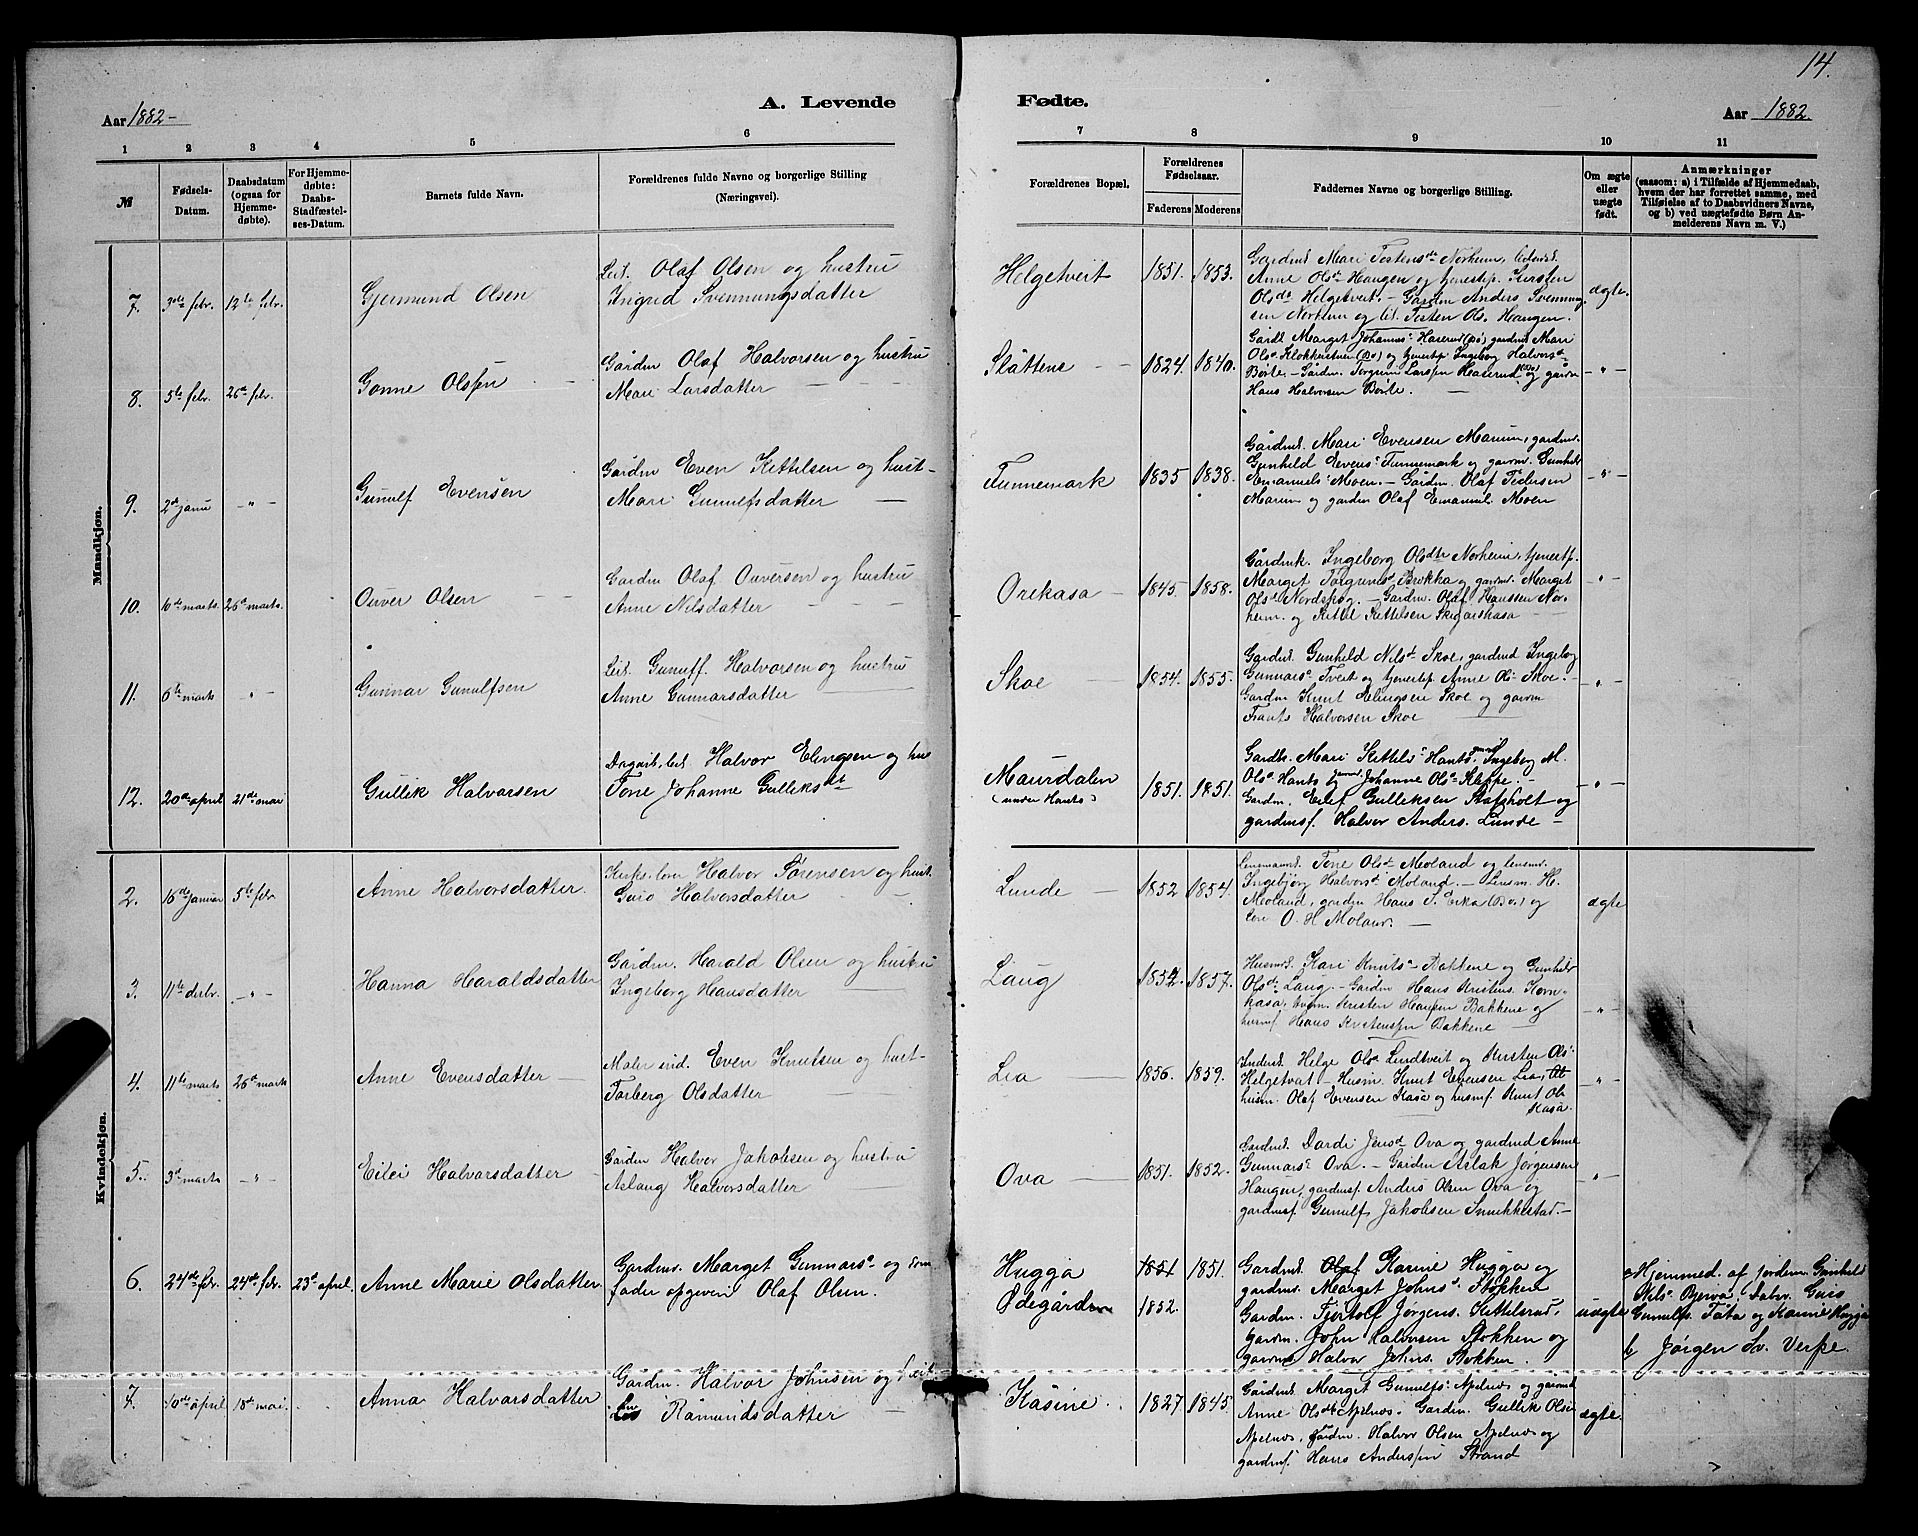 14.
A. Levende Fødte.
Aar 1882- Aar 1882.
1 2 3 4 5 6 7 8 9 10 11
№ Fødsels-Datum. Daabsdatum (ogsaa for Hjemmedøbte). For Hjemmedøbte: Daabs-Stadfæstelses-Datum. Barnets fulde Navn. Forældrenes fulde Navne og borgerlige Stilling (Næringsvei). Forældrenes Bopæl. Forældrenes Fødselsaar. Faderens Moderens Faddernes Navne og borgerlige Stilling. Om ægte eller uægte født. Anmærkninger (saasom: a) i Tilfælde af Hjemmedaab, hvem der har forrettet samme, med Tilføielse af to Daabsvidners Navne, og b) ved uægtefødte Børn Anmelderens Navn m. V.)
Mandkjøn.
7. 3die febr. 12te febr. Gjermund Olsen
Leil. Olaf Olsen og hustru
Ingrid Svennungsdatter
Helgetveit 1851. 1853.
Gardmd. Mari Tostensdr Norheim, leilænd.
Anne Olsdr Haugen og tjenestp. Kirsten
Olsdr Helgetveit. – Gårdm Anders Svennung
sen Norheim og leil. Tosten Ols. Haugen.
ægte.
8. 5te febr. 26de febr. Gonne Olsen
Gårdm Olaf Halvorsen og hustru
Mari Larsdatter
Slåttene 1824. 1840.
Gardk Marget Johannes' Haserud (Bø) gardmd Mari
Ols. Klokkustuen (Bø) og tjenestp Ingebog Halvorsd
Bøile – Gårdm. Torgrim Larssen Haserud (Bø) og gårdm
Hans Halvorsen Bøile. –
– " –
9. 2den janu – " – Gunulf Evensen
Gårdm Even Kettilsen og hust–
Mari Gunulfsdatter
Tunnemark 1835 1838.
Gårdmd. Mari Evensen Marum, gardmd.
Gunhild Evens' Tunnemark og gårdm. Gunhild
Emanuels' Moen. – Gårdm. Olaf Pedersen
Marum og gardm Olaf Emanuel. Moen
– " –
10. 10de marts. 26de marts. Ouver Olsen
Gardm Olaf Ouversen og hustru
Anne Nilsdatter
Orekasa 1845. 1858.
Gårdmk. Ingeborg Olsdtr Norheim, tjenestp.
Marget Torgrimsd. Brokka og gardm. Marget
Olsdr Nordskog. – Gardm. Olaf Hanssen Nor-
heim. og Kittil Kettilsen Skogarskasa
– " –
11. 6te marts – " – Gunnar Gunulfsen
Leil. Gunulf. Halvorsen og hustru
Anne Gunnarsdatter
Skoe 1854. 1855.
Gardmd. Gunhild Nilsdr Skoe, gardmd Ingebog
Gunnars' Tveit og tjenestp Anne Ols. Skoe. –
Gardm Knut Elingsen Skoe og gardm
Frants Halvorsen Skoe
– " –
12. 20de april 21de mai Gullik Halvarsen
Dagarb., leil. Halvor Elingsen og hu
Tone Johanne Gulliksdt
Maurdalen
(under Hanto) 1851. 1851.
Gardk. Mari Kettils' Hanto, Ingebog M.
Ols. Hanto og Johanne Ols. Kleppe. –
Gardm. Eilef Gulliksen Stafsholt og
gardmsf. Halvor Anders. Lunde –
– " –
Kvindekjøn.
2. 16de januar 5te febr Anne Halvorsdatter.
Kirkes. lær. Halvor Sørensen og hust.
Guro Halvorsdatter
Lunde 1852 1854.
Lensmannk. Tone Olsdr Moland og lensmd.
Ingebjørg Halvorsdr Moland. – Lensm. H.
Moland, gardm Hans S. Erka (Bø.) og
lær. O. H Moland. –
ægte
3. 11te debr. – " – Hanna Haraldsdatter
Gårdm. Harald Olsen og hustru
Ingeborg Hansdatter
Laug 1857.
Husmk. Kari Knuts' Bakkene og Gunhild
Olsdr Laug – Gårdm Hans Kristens. Korn-
kasa, husm. Kristen Hansen Bakkene og
husmf. Hans Kristensen Bakkene –
– " –
4. 11te marts 26de marts Anne Evensdatter
Maler ind. Even Knutsen og hust–
Torberg Olsdatter
Lia 1856. 1859.
Inderst. Helge Ols. Lundtveit og Kirsten Ols'
Helgetvat – Husm. Knut Evensen Lia,
husm. Olaf Evensen Kasa og husmf. Knut Ols
Kasa.
– " –
5. 3de marts – " – Eilei Halvarsdatter
Gårdm Halvor Jakobsen og hustru
Aslaug Halvorsdatter
Ova 1851. 1852.
Gardmd. Dardi Jensd Ova og gardmd Anne
Gunnars' Ova. – Gårdm Aslak Jørgensen
Haugen, gardmsf. Anders Olsen Ova og
gardmsf Gunulf Jakobsen Smukkestad. –
– " –
6. 24de febr. 24de febr. 23de april. Anne Marie Olsdatter
Gardm. Marget Gunnars' og som
fader opgiven Olaf Olsen.
Hugga
Ødegården 1851
1852. 1851.
Gardmd. Olaf Karine Hugga og
gardmd. Marget Johns' Stokken
Gardm. Tjostolf Jørgens. Kittilsrud,
Gardm. John Halvorsen Stokken og
gardm Halvor Johns. Stokken.
uægte
a Hjemmed. af jordem. Gunhild
Nils' Bjerva. Fadv. Guro
Gunulfs. Tåta og Karine Hugga
b Jørgen Sv. Verpe.
7. 10de april 18de mai Anna Halvarsdatter
Gårdm. Halvor Johnsen og hust–
Liv Råmundsdatter
Kåsine 1827 1845.
Gårdmd. Marget Gunulfs' Apelnæs og gårdmd
Anne Olsdr Apelnæs. Gardm. Gullik Olsen
Apelnæs, gårdm. Halvor Olsen Apelnæs og
gardmsf. Hans Anderssen Strand
ægte.